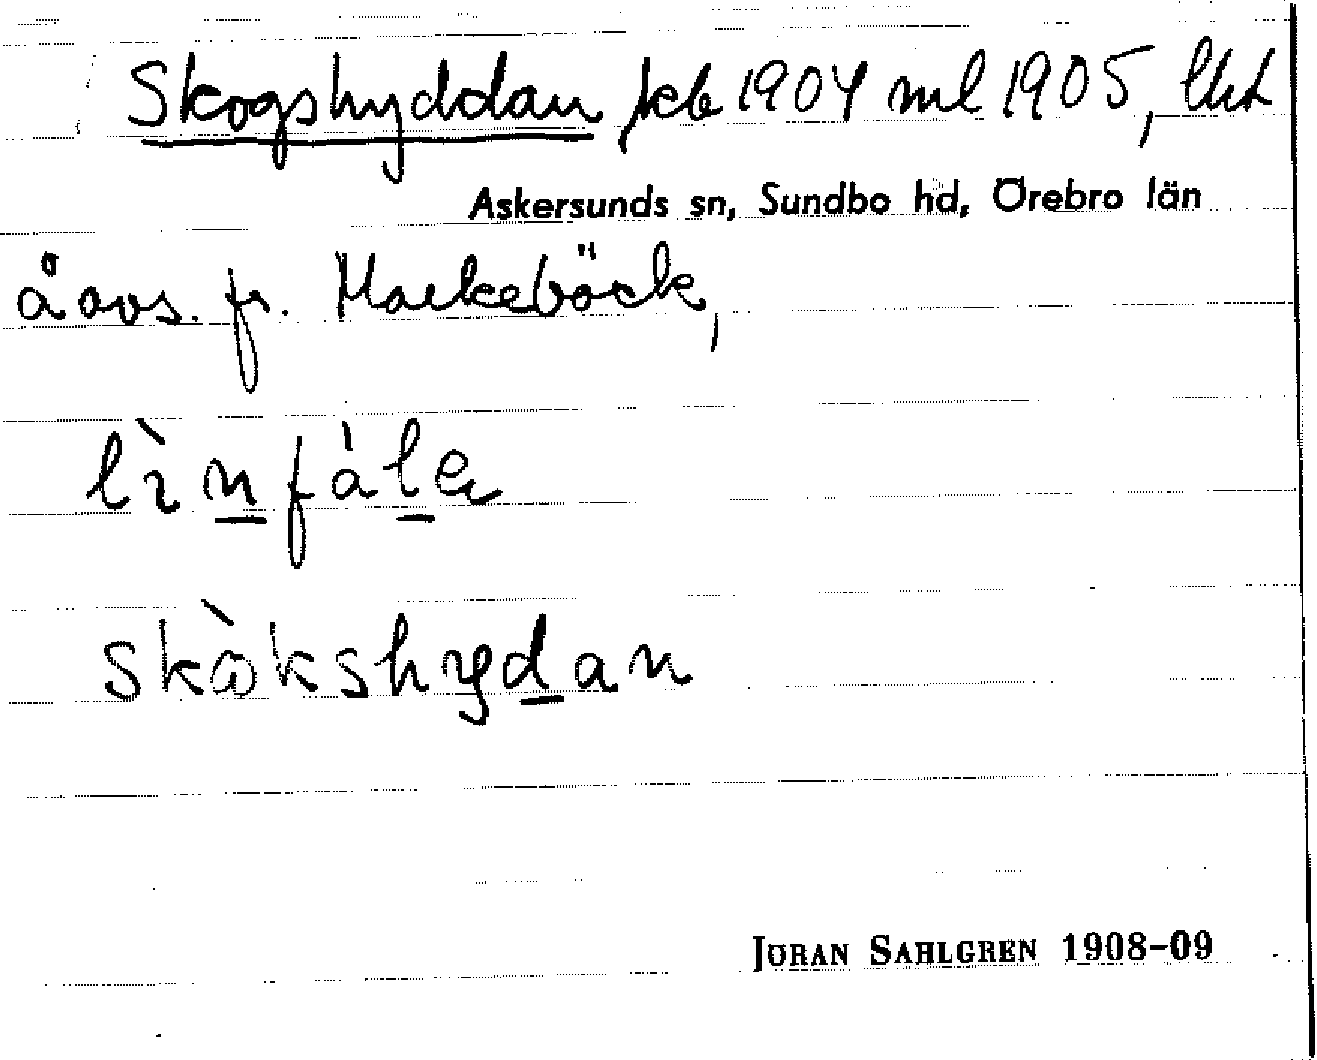 Skogshyddan jkb 1904 ml 1905, lht
Askersunds sn, Sundbo hd, Örebro län
å avs. fr. Markebäck,
lìnfàle
skòkshydan
JÖRAN SAHLGREN 1908-09